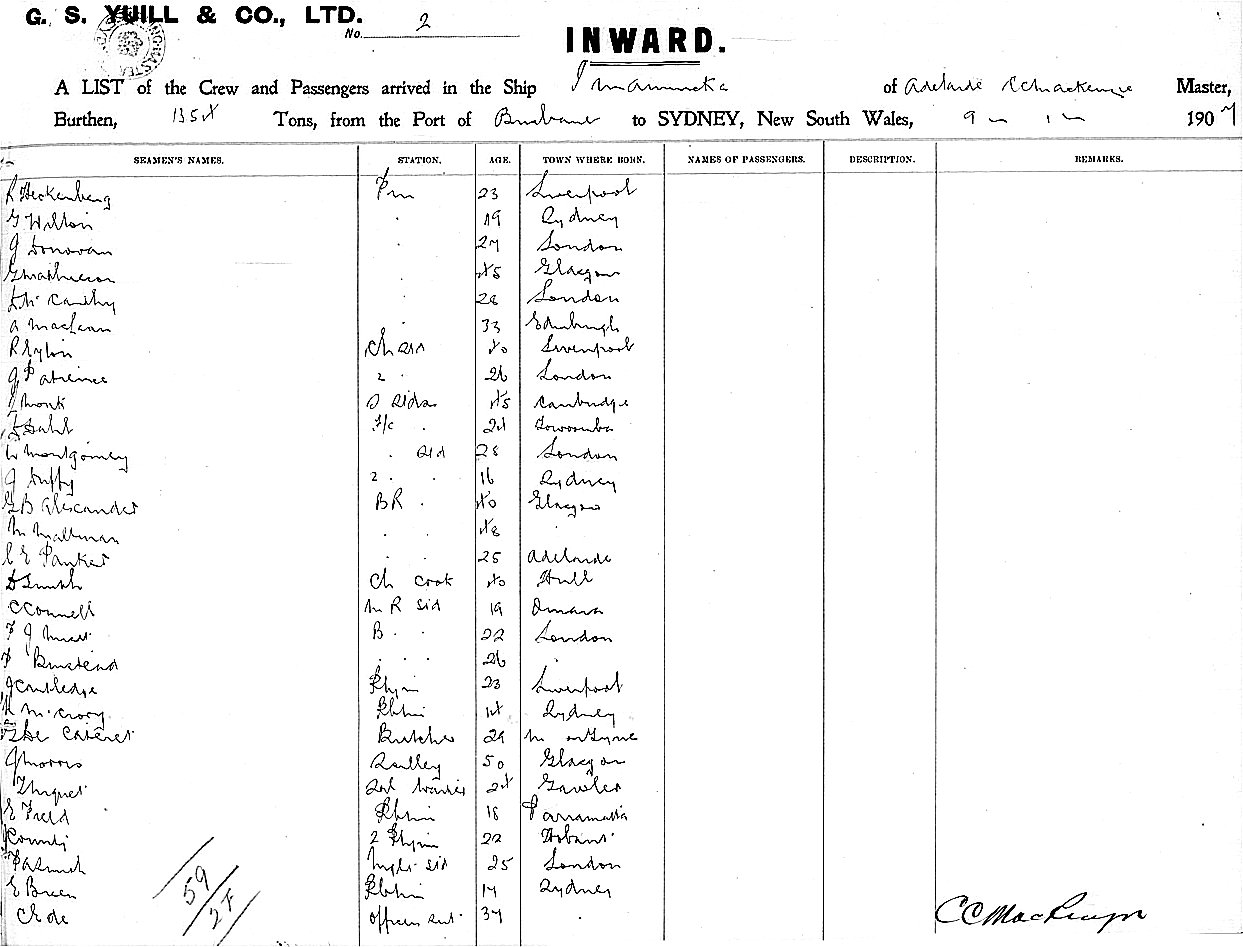 G. S. YUILL & CO., LTD.
No. 2
INWARD.
A LIST of the Crew and Passengers arrived in the Ship Innamincka of Adelaide C C Mackenzie Master,
Burthen, Tons, from the Port of Brisbane to SYDNEY, New South Wales, 9 1 1907
SEAMEN'S NAMES. STATION. AGE. TOWN WHERE BORN. NAMES OF PASSENGERS. DESCRIPTION. REMARKS.
R Heckenberg Fm 23 Liverpool
G Wilton . 19 Sydney
J Donovan . 27 London
G Mathieson . 45 Glasgow
McCarthy . 28 London
A MacLean . 33 Edinburgh
40 Liverpool
J Patience 2 . 26 London
J Monk 45 Cambridge
F/c . 24 Toowoomba
W Montgomery . 28 London
J Duffy 2 . . 16 Sydney
G B Alexander BR . 40 Glasgow
M . . 48 .
C E Parker . . 25 Adelaide
D Smith Ch Cook 40 Hull
C Connell M R Std 19
F J B . . 22 London
F Bunstead . . . 26 .
J Routledge 23 Liverpool
McCrory 14 Sydney
De Carteret Butcher 29
J Morris Scullery 50 Glasgow
24 Gawler
E Field 18 Parramatta
2 22 Hobart
Smith 25 London
E Breen 17 Sydney
Officers Sevt 37 .
59
2F
C C MacKenzie